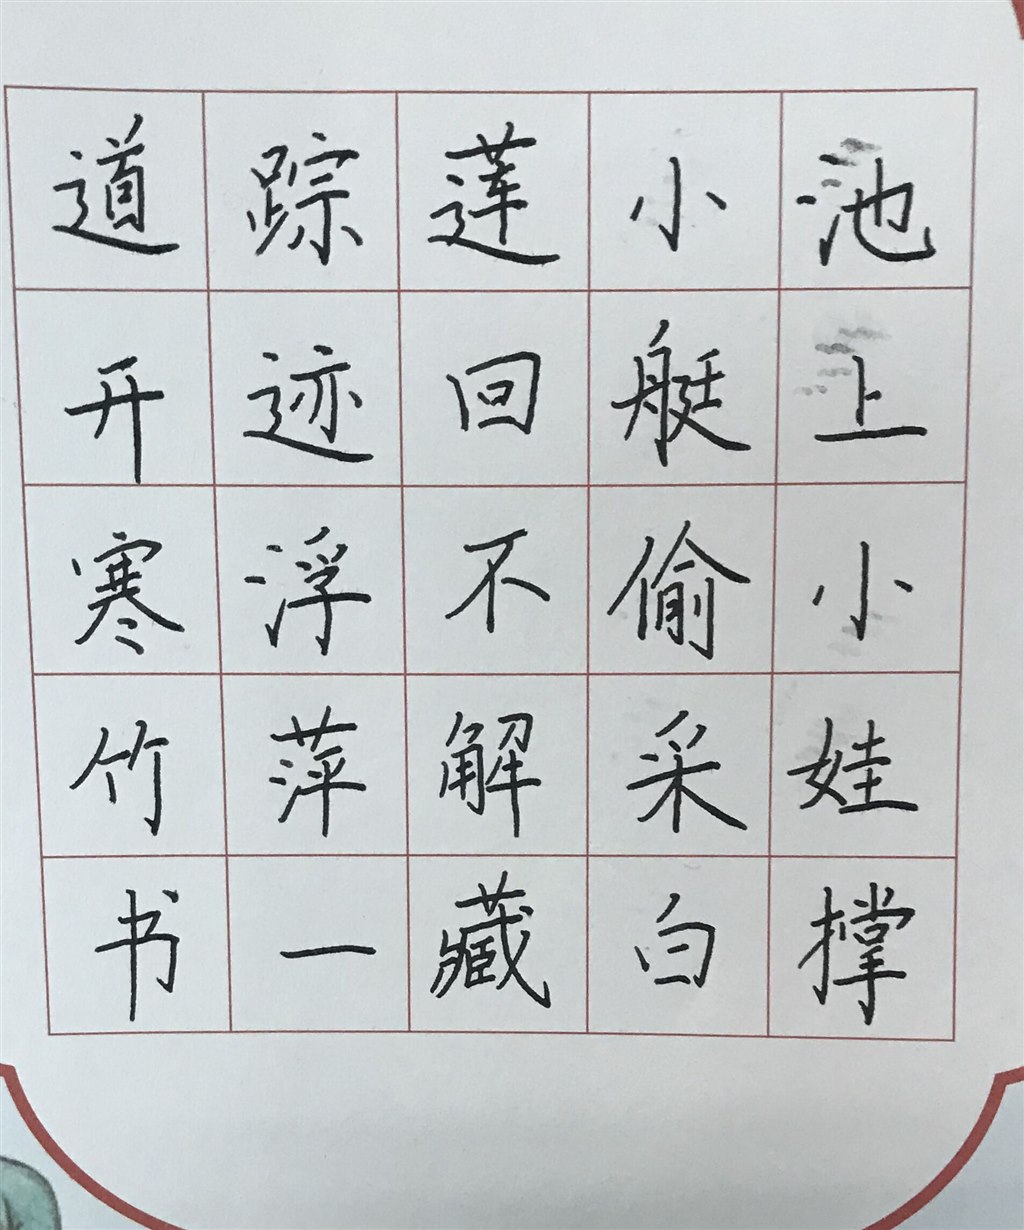 池上小娃撑
小艇偷采白
莲回不解藏
踪迹浮萍一
道开寒竹书